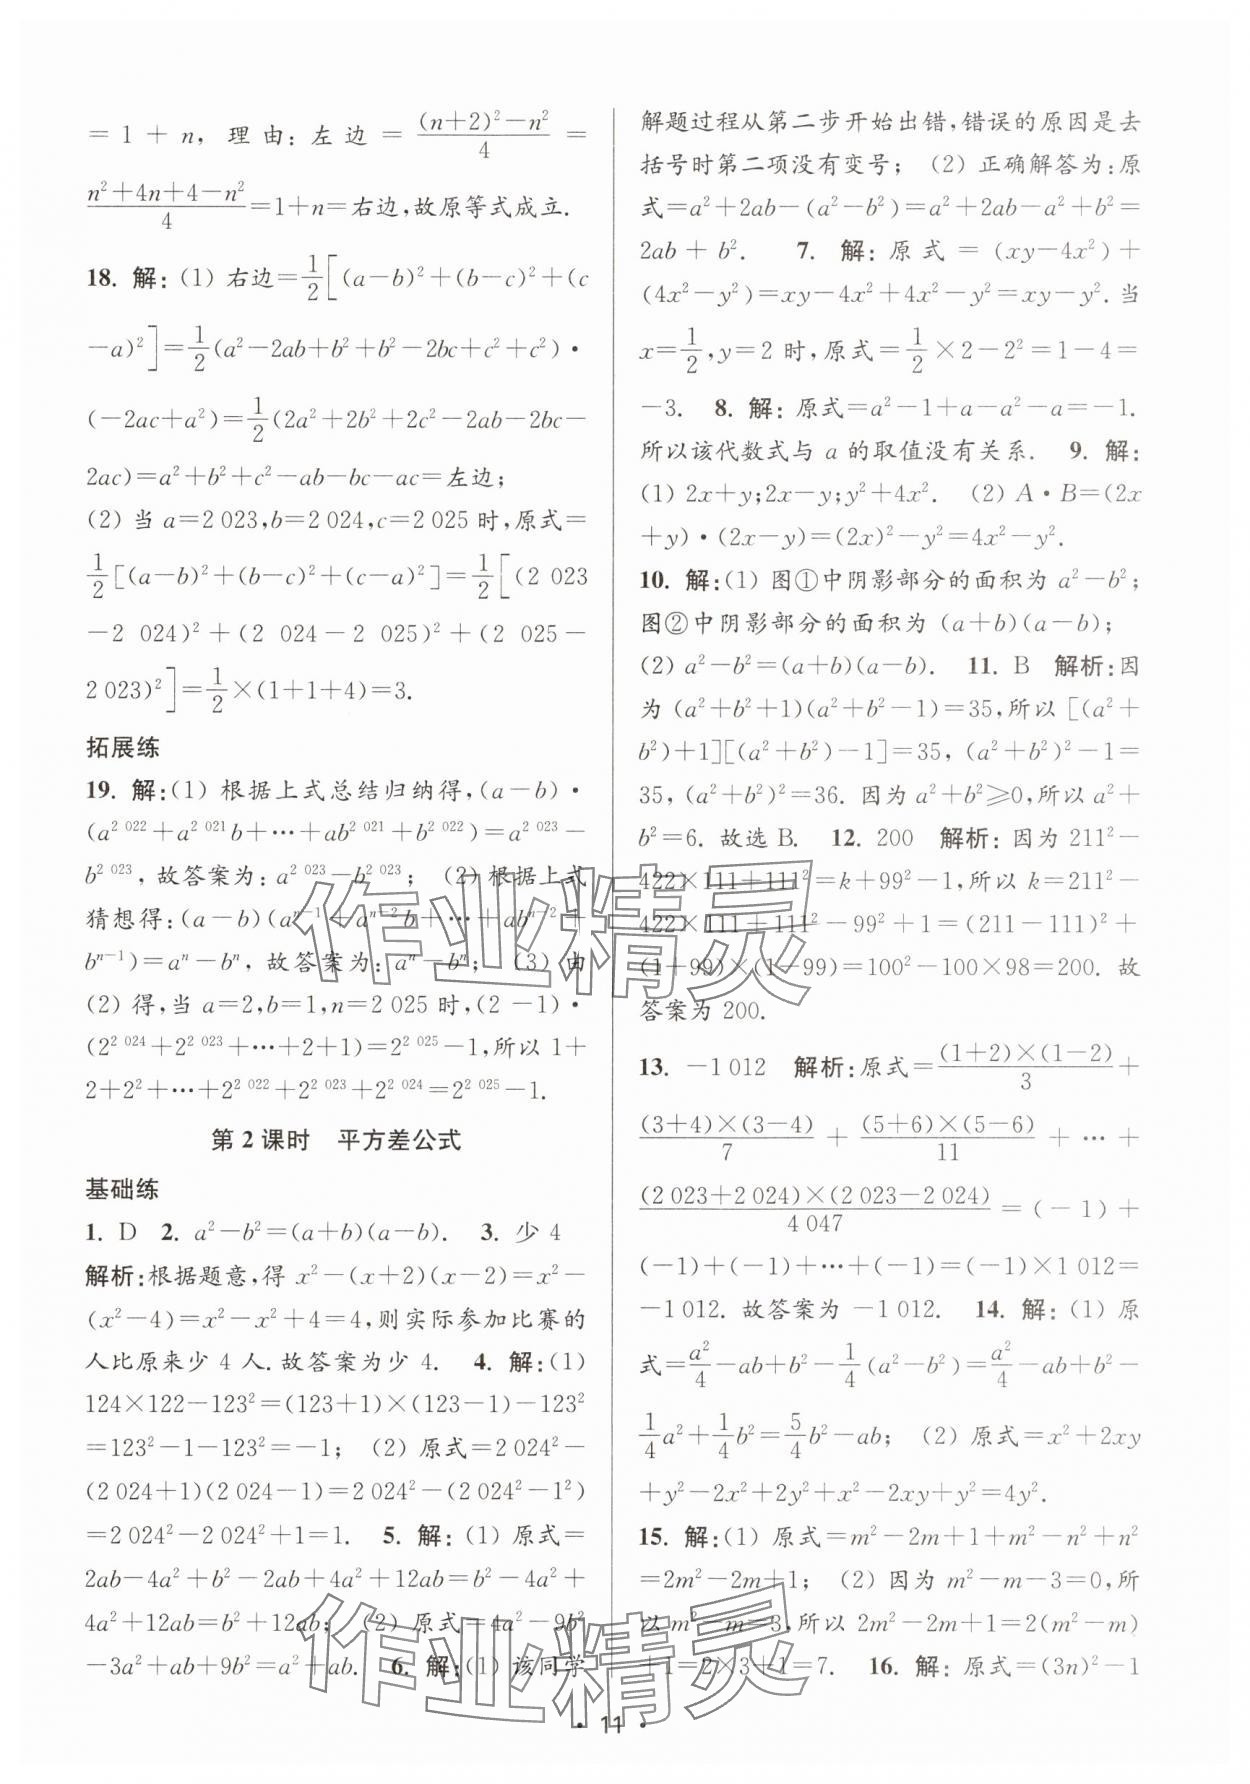 =1+n, 理由:左边=\frac{(n+2)²-n²}{4}=
\frac{n²+4n+4-n²}{4}=1+n=右边,故原等式成立.
18. 解:(1) 右边=\frac{1}{2}[(a-b)²+(b-c)²+(c
-a)²]=\frac{1}{2}(a²-2ab+b²+b²-2bc+c²+c²)·
(-2ac+a²)=\frac{1}{2}(2a²+2b²+2c²-2ab-2bc-
2ac)=a²+b²+c²-ab-bc-ac=左边;
(2) 当 a=2 023,b=2 024,c=2 025 时,原式=
\frac{1}{2}[(a-b)²+(b-c)²+(c-a)²]=\frac{1}{2}[(2 023
-2 024)²+(2 024-2 025)²+(2 025-
2 023)²]=\frac{1}{2}×(1+1+4)=3.
拓展练
19. 解:(1) 根据上式总结归纳得,(a-b)·
(a^{2 022}+a^{2 021}b+···+ab^{2 021}+b^{2 022})=a^{2 023}-
b^{2 023}, 故答案为: a^{2 023}-b^{2 023}; (2) 根据上式
猜想得:(a-b)(a^{n-1}+a^{n-2}b+···+ab^{n-2}+
b^{n-1})=a^n-b^n, 故答案为: a^n-b^n; (3) 由
(2) 得,当 a=2,b=1,n=2 025 时,(2-1)·
(2^{2 024}+2^{2 023}+···+2+1)=2^{2 025}-1,所以 1+
2+2²+···+2^{2 022}+2^{2 023}+2^{2 024}=2^{2 025}-1.
第 2 课时 平方差公式
基础练
1. D 2. a²-b²=(a+b)(a-b). 3. 少 4
解析:根据题意,得 x²-(x+2)(x-2)=x²-
(x²-4)=x²-x²+4=4,则实际参加比赛的
人比原来少 4 人.故答案为少 4. 4. 解:(1)
124×122-123²=(123+1)×(123-1)-123²
=123²-1-123²=-1; (2) 原式=2 024²-
(2 024+1)(2 024-1)=2 024²-(2 024²-1²)
=2 024²-2 024²+1=1. 5. 解:(1) 原式=
2ab-4a²+b²-2ab+4a²+12ab=b²-4a²+
4a²+12ab=b²+12ab; (2) 原式=4a²-9b²
-3a²+ab+9b²=a²+ab. 6. 解:(1) 该同学
解题过程从第二步开始出错,错误的原因是去
括号时第二项没有变号; (2) 正确解答为:原
式=a²+2ab-(a²-b²)=a²+2ab-a²+b²=
2ab+b². 7. 解:原式=(xy-4x²)+
(4x²-y²)=xy-4x²+4x²-y²=xy-y². 当
x=\frac{1}{2},y=2 时,原式=\frac{1}{2}×2-2²=1-4=
-3. 8. 解:原式=a²-1+a-a²-a=-1.
所以该代数式与 a 的取值没有关系. 9. 解:
(1) 2x+y;2x-y;y²+4x². (2) A·B=(2x
+y)·(2x-y)=(2x)²-y²=4x²-y².
10. 解:(1) 图①中阴影部分的面积为 a²-b²;
图②中阴影部分的面积为 (a+b)(a-b);
(2) a²-b²=(a+b)(a-b). 11. B 解析:因
为 (a²+b²+1)(a²+b²-1)=35,所以 [(a²+
b²)+1][(a²+b²)-1]=35, (a²+b²)²-1=
35, (a²+b²)²=36. 因为 a²+b²⩾0,所以 a²+
b²=6. 故选 B. 12. 200 解析: 因为 211²-
422×111+111²=k+99²-1,所以 k=211²-
422×111+111²-99²+1=(211-111)²+
(1+99)×(1-99)=100²-100×98=200. 故
答案为 200.
13. -1 012 解析:原式=\frac{(1+2)×(1-2)}{3}+
\frac{(3+4)×(3-4)}{7}+\frac{(5+6)×(5-6)}{11}+···+
\frac{(2 023+2 024)×(2 023-2 024)}{4 047}=(-1)+
(-1)+(-1)+···+(-1)=(-1)×1 012=
-1 012. 故答案为 -1 012. 14. 解:(1) 原
式=\frac{a²}{4}-ab+b²-\frac{1}{4}(a²-b²)=\frac{a²}{4}-ab+b²-
\frac{1}{4}a²+\frac{1}{4}b²=\frac{5}{4}b²-ab; (2) 原式=x²+2xy
+y²-2x²+2y²+x²-2xy+y²=4y².
15. 解:(1) 原式=m²-2m+1+m²-n²+n²
=2m²-2m+1; (2) 因为 m²-m-3=0,所
以 m²-m=3,所以 2m²-2m+1=2(m²-m)
+1=2×3+1=7. 16. 解:原式=(3n)²-1
· 11 ·
作业精灵
作业精灵